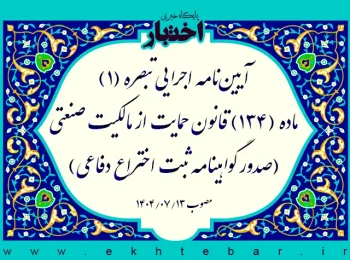 پایگاه خبری
اختبار
آیین‌نامه اجرایی تبصره (۱)
ماده (۱۳۴) قانون حمایت از مالکیت صنعتی
(صدور گواهینامه ثبت اختراع دفاعی)
مصوب ۱۴۰۴/۰۷/۱۳
www.ekhtebar.ir